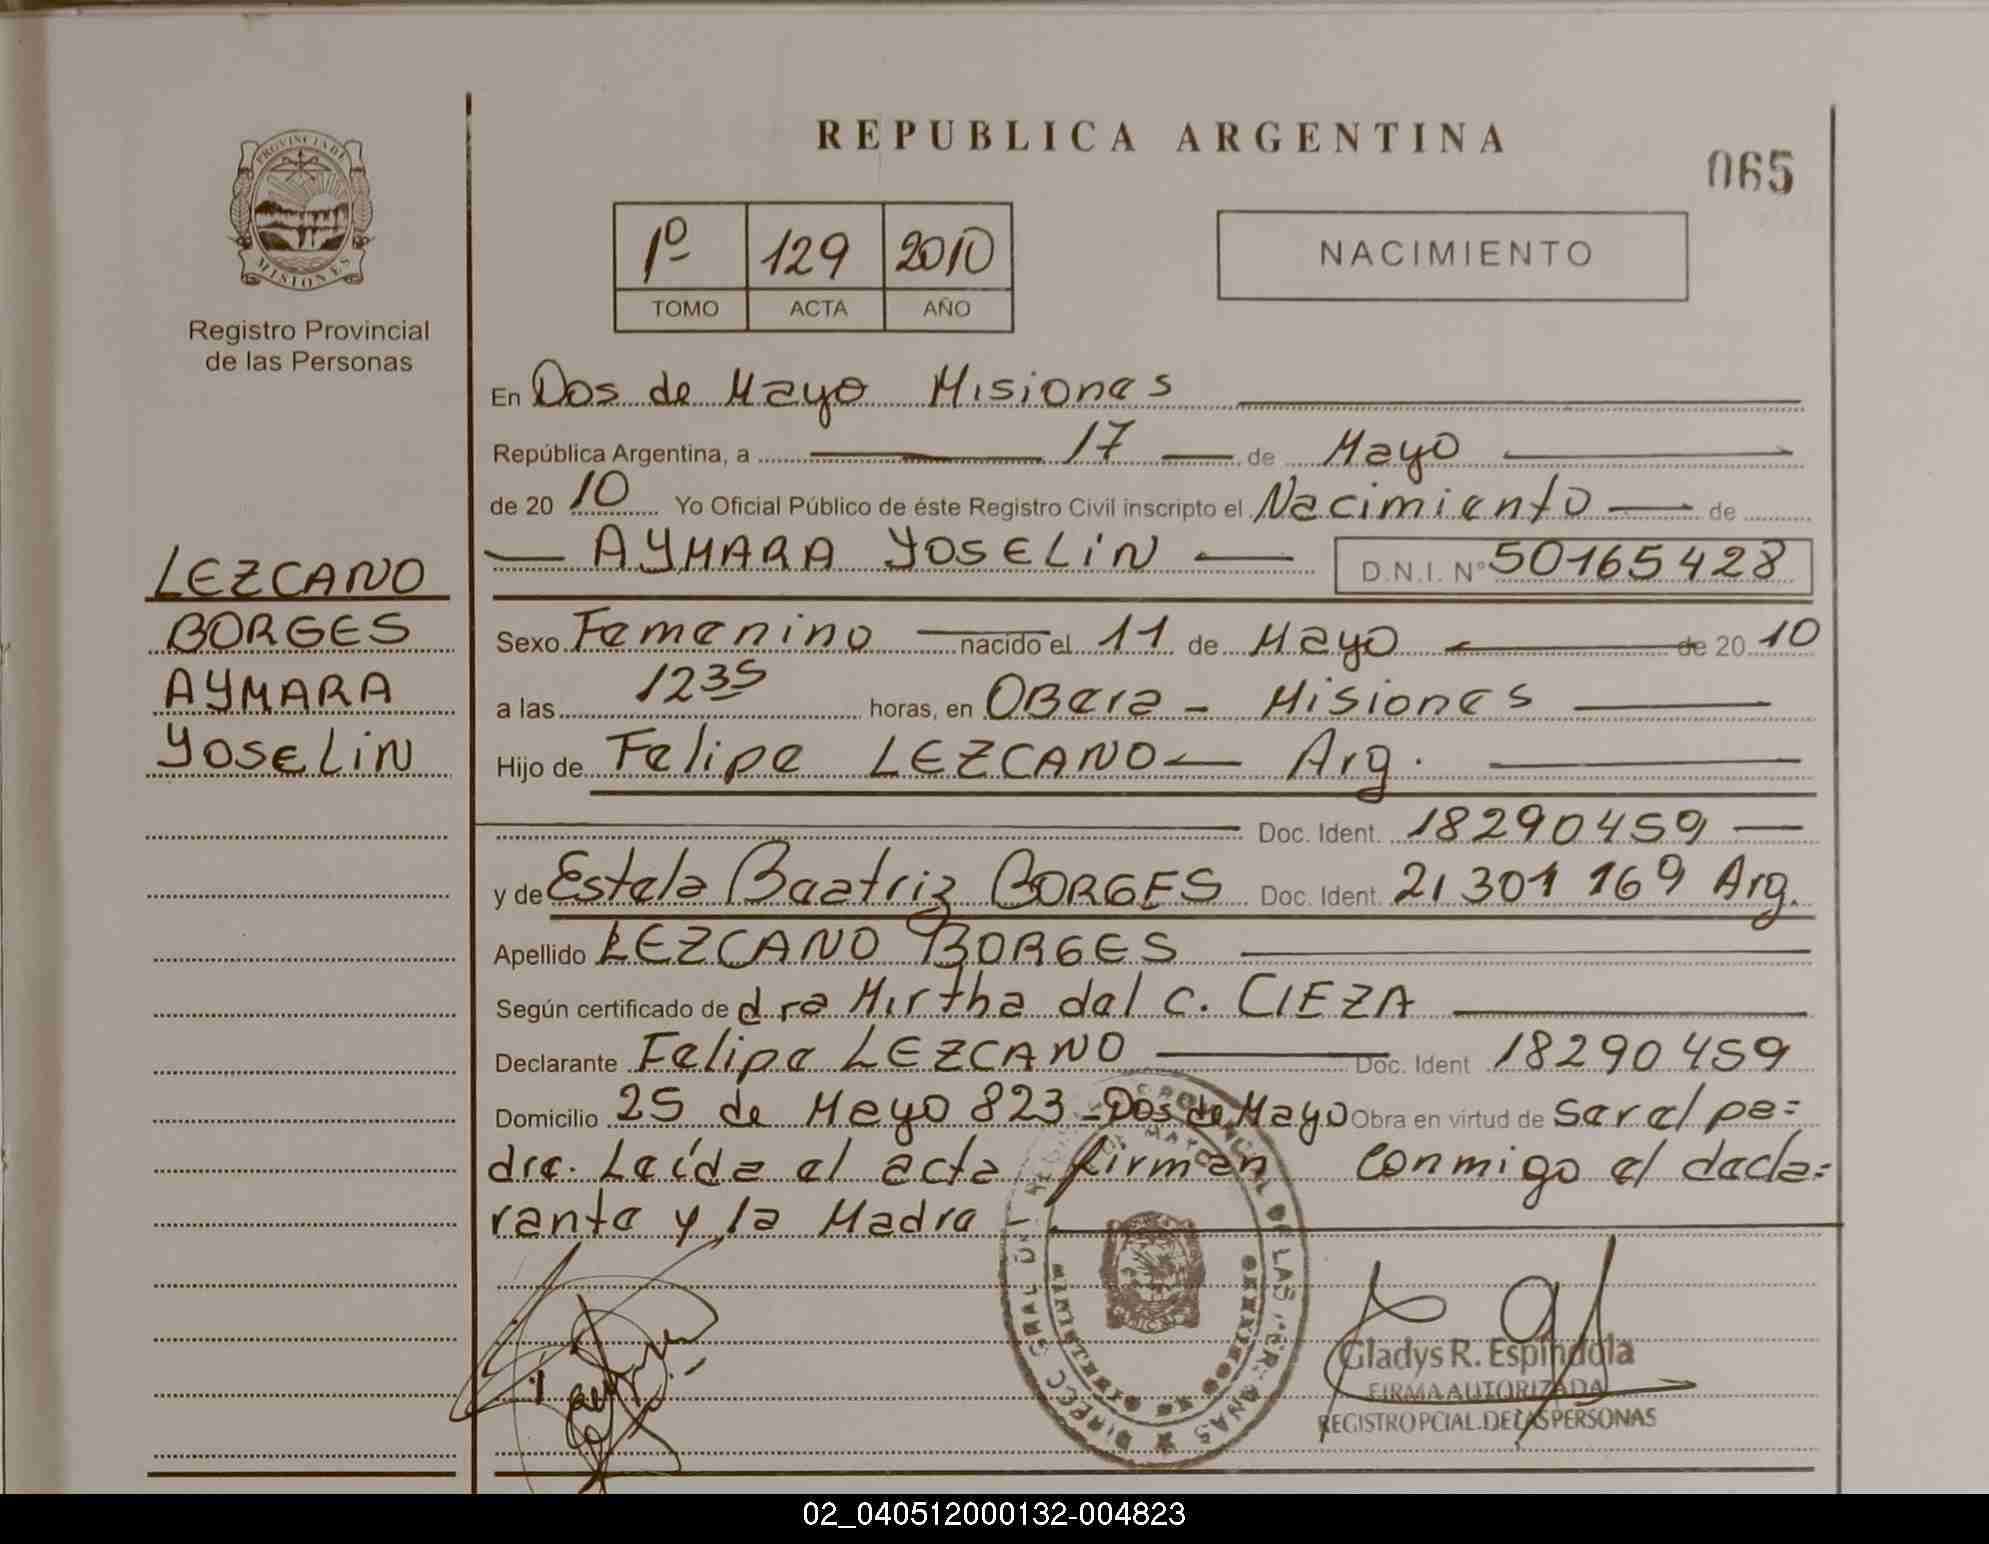 REPUBLICA ARGENTINA
065
PROVINCIA DE
MISIONES
Registro Provincial
de las Personas
1º 129 2010
TOMO ACTA AÑO
NACIMIENTO
En Dos de Mayo Misiones
República Argentina, a 17 de Mayo
de 20 10 Yo Oficial Público de éste Registro Civil inscripto el Nacimiento de
AYMARA YOSELiN D.N.I. Nº 50165428
LEZCANO
BORGES
AYMARA
YOSELiN
Sexo Femenino nacido el 11 de Mayo de 20 10
a las 1235 horas, en OBera - Misiones
Hijo de Felipe LEZCANO Arg.
Doc. Ident. 18290459
y de Estela Beatriz BORGES Doc. Ident. 21 301 169 Arg.
Apellido LEZCANO BORGES
Según certificado de dra Mirtha del c. CIEZA
Declarante Felipe LEZCANO Doc. Ident 18290459
Domicilio 25 de Mayo 823 - Dos de Mayo Obra en virtud de ser el pa=
dre. Leída el acta firman conmigo el decla=
rante y la Madre
Gladys R. Espindola
FIRMA AUTORIZADA
REGISTRO PCIAL. DE LAS PERSONAS
02_040512000132-004823